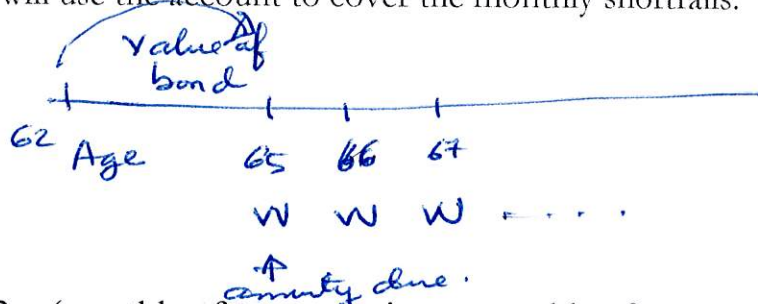 will use the account to cover the monthly shortfalls.
Value of
bond
62 Age 65 66 67
W W W . . . .
↑
annuity due.